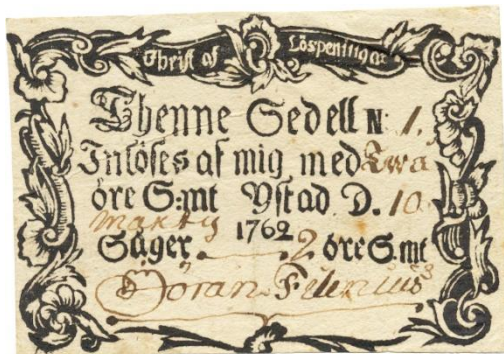 Thrist af Löspenningar
Thenne Sedell N 1.
Inlöses af mig med Twå
öre S:mt Ystad D. 10
Martij 1762
Säger 2 öre S.mt
Göran Filenius